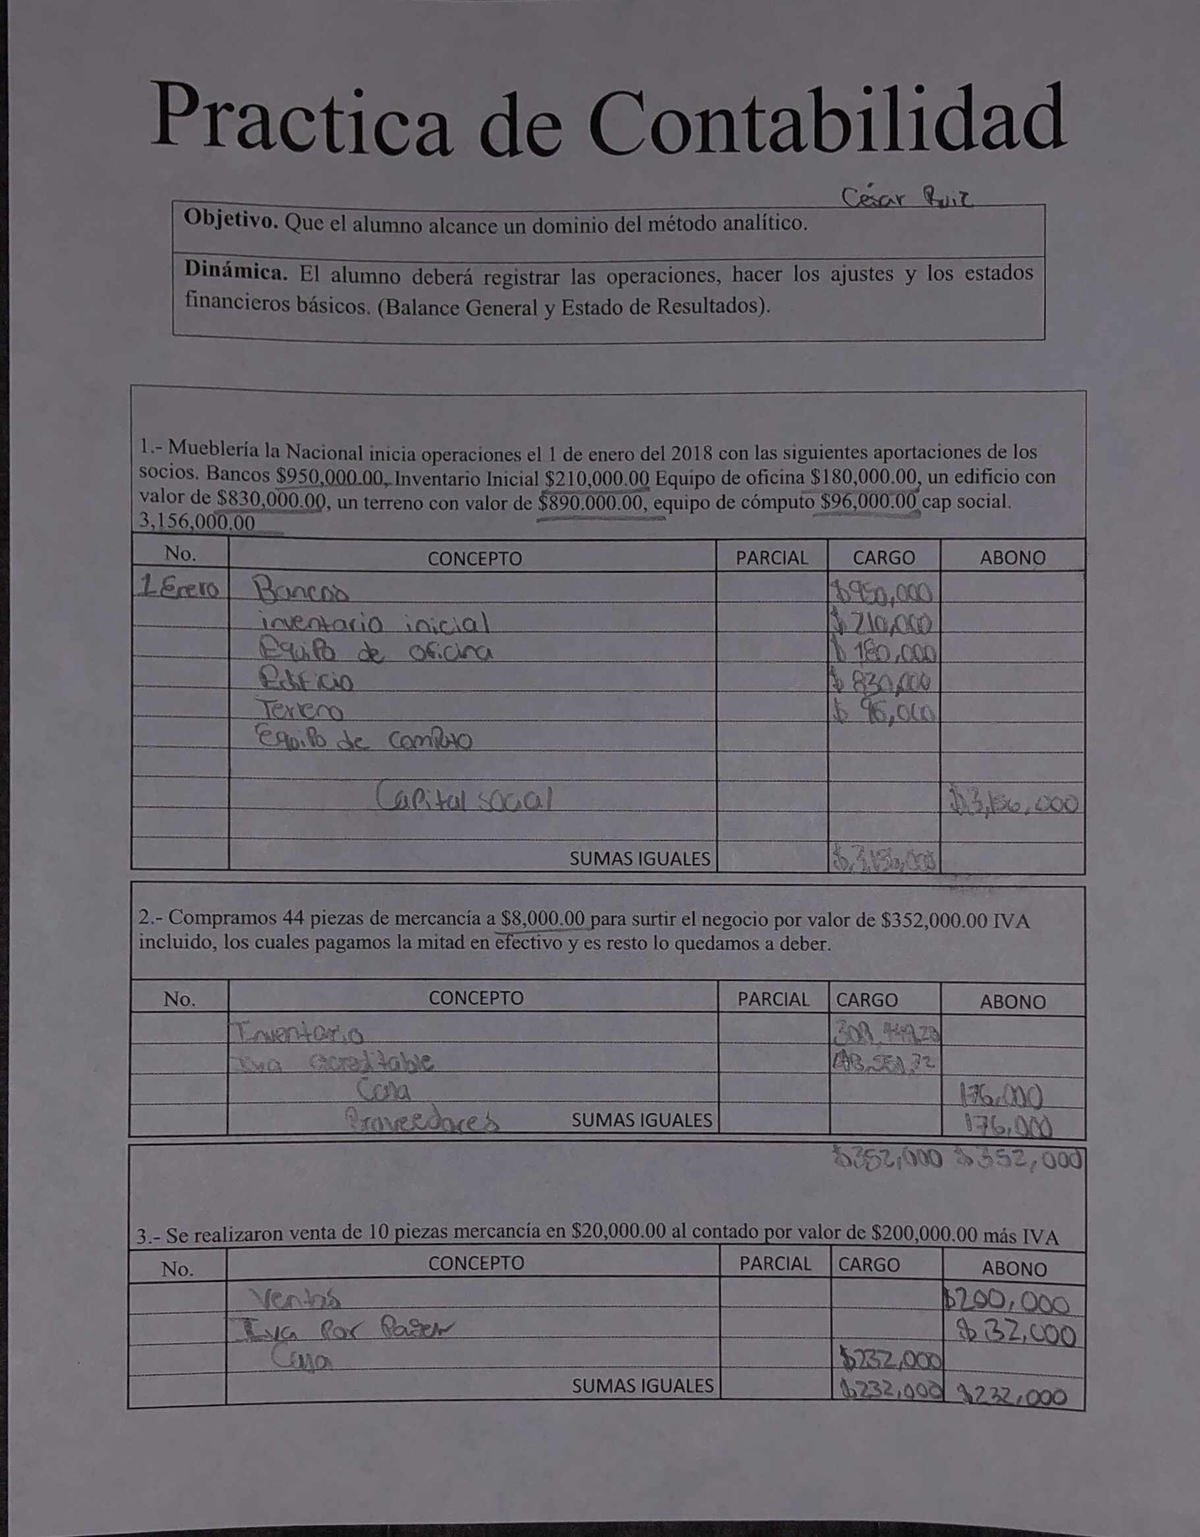 Practica de Contabilidad
César Ruiz
Objetivo. Que el alumno alcance un dominio del método analítico.
Dinámica. El alumno deberá registrar las operaciones, hacer los ajustes y los estados
financieros básicos. (Balance General y Estado de Resultados).
1.- Mueblería la Nacional inicia operaciones el 1 de enero del 2018 con las siguientes aportaciones de los
socios. Bancos $950,000.00, Inventario Inicial $210,000.00 Equipo de oficina $180,000.00, un edificio con
valor de $830,000.00, un terreno con valor de $890.000.00, equipo de cómputo $96,000.00 cap social.
3,156,000.00
No. CONCEPTO PARCIAL CARGO ABONO
1 Enero Bancos $950,000
inventario inicial $210,000
Equipo de oficina $180,000
Edificio $830,000
Terreno $96,000
Equipo de computo
Capital social $3,156,000
SUMAS IGUALES $3,156,000
2.- Compramos 44 piezas de mercancía a $8,000.00 para surtir el negocio por valor de $352,000.00 IVA
incluido, los cuales pagamos la mitad en efectivo y es resto lo quedamos a deber.
No. CONCEPTO PARCIAL CARGO ABONO
Inventario
Iva acreditable
Caja 176,000
Proveedores SUMAS IGUALES 176,000
$352,000 $352,000
3.- Se realizaron venta de 10 piezas mercancía en $20,000.00 al contado por valor de $200,000.00 más IVA
No. CONCEPTO PARCIAL CARGO ABONO
Ventas $200,000
Iva Por Pagar $32,000
Caja $232,000
SUMAS IGUALES $232,000 $232,000